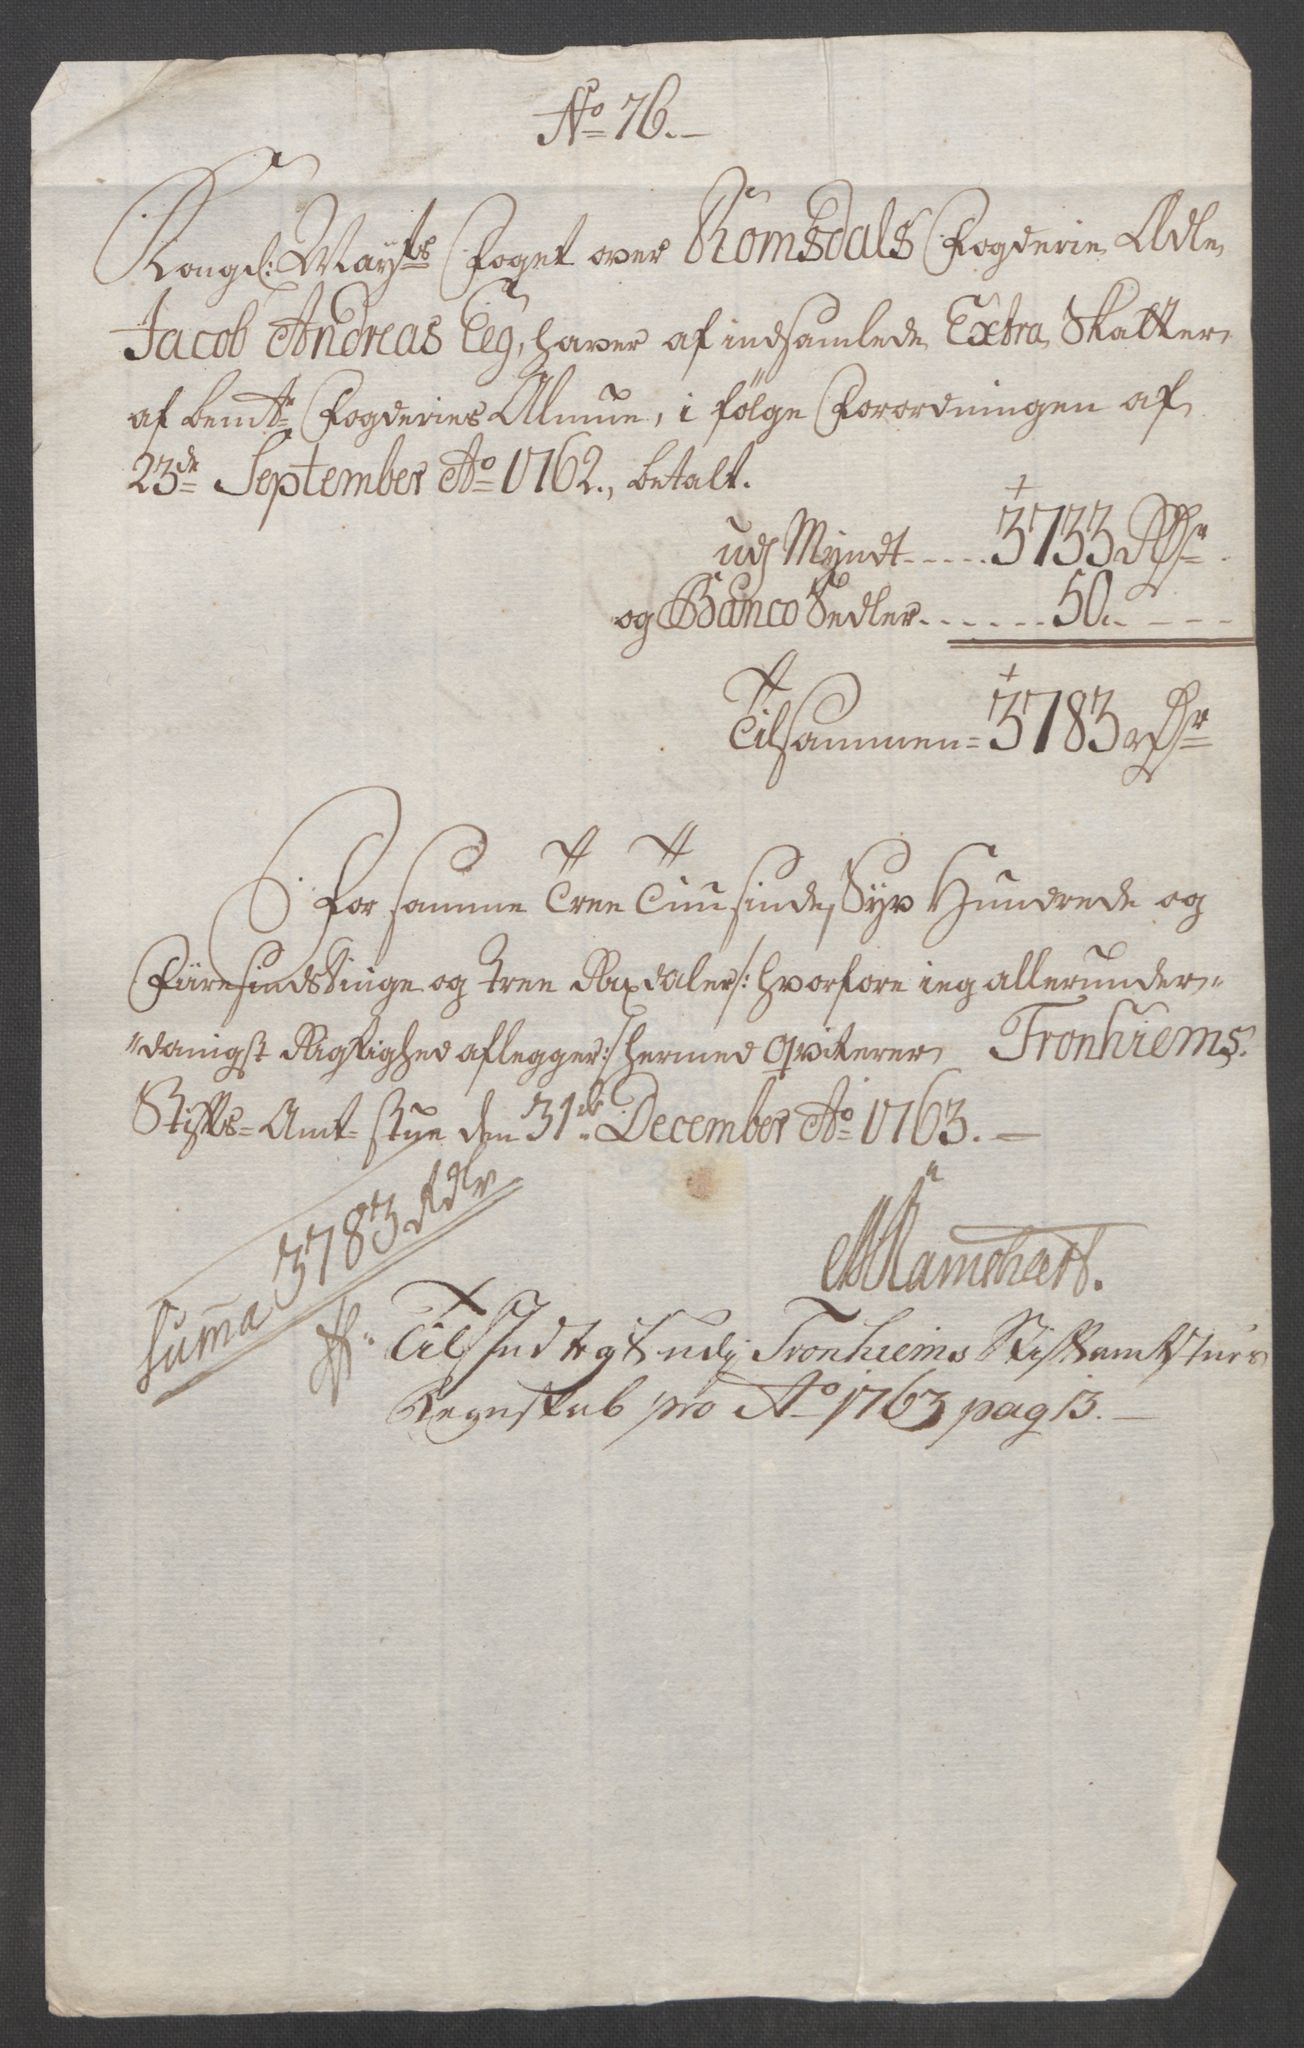 No 76.
Kongel: Mayts Foget over Romsdals Fogderie, Adle
Jacob Andreas Eeg, haver af indsamlede Extra Skatter
af bemte Fogderies Almue, i fölge Forordningen af
23de September Ao 1762., betalt.
udj Myndt ..... 3733 Rdr
og Banco Sedler ....... 50.. - - -
Tilsammen = 3783 Rdr
For samme Tree Tuusinde, Syv Hundrede og
Fiiresindstinge og tree Rixdaler /: hvorfore ieg allerunder-
danigst Rigtighed aflegger :/ hermed qviterer Tronhiems
Stifts-Amt-stue den 31de December Ao 1763. —
MRamshart.
Suma 3783 Rdr
Til Indtegt udj Tronhiems Stiftamtstues
Regnskab pro Ao 1763 pag 13. —